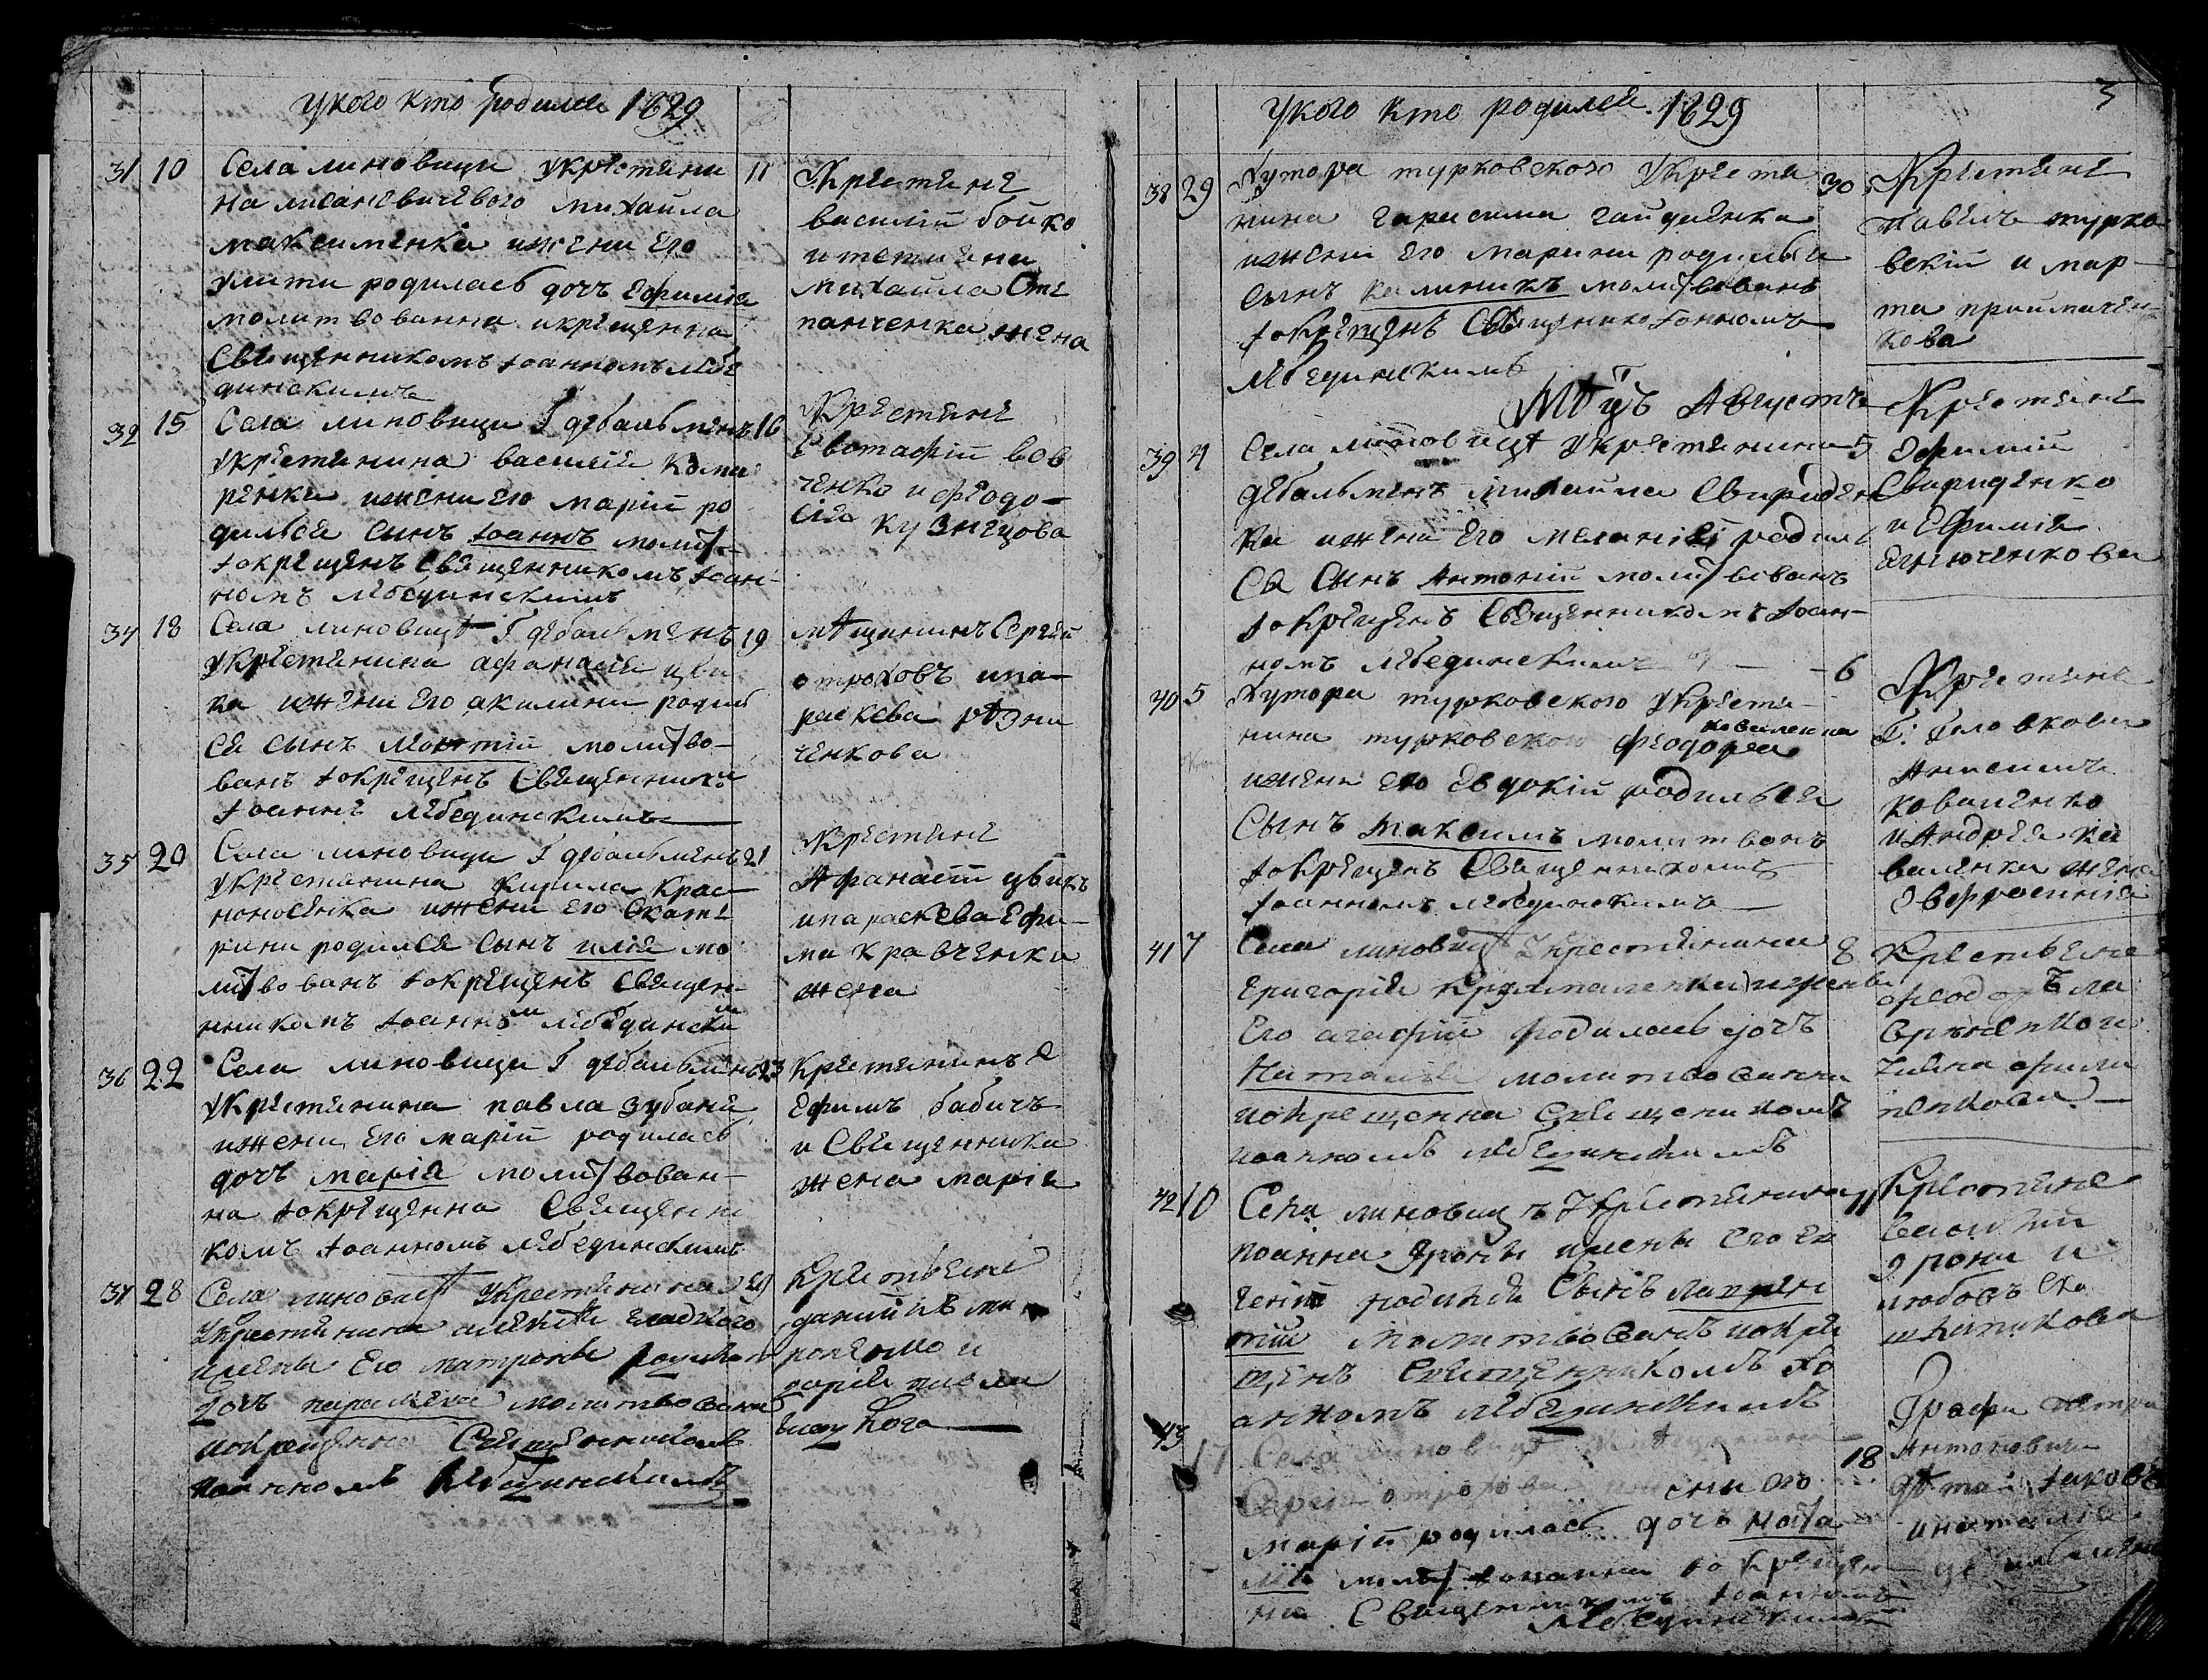 укого кто родился 1829
31 10 Села линовици укрестяни 11
на лисаневичевого михайла
максименка ижени его
улити родиласъ дочъ Ефимия
молитвованна икрещенна
Священникомъ Іоанномъ лебе
динскимъ
Крестяне
василій бойко
и тетияна
михайла Сте
панченка жена
32 15 Села линовици Г дебальменъ 16
укрестянина василия
ренка ижени его марій ро
дилъся сынъ Іоаннъ молит
Іокрещенъ священникомъ Іоан-
номъ лебединскимъ
Крестяне
Евстафій вов
ченко и феодо-
сия кузнецова
34 18 Села линовицѣ Г дебальменъ 19
укрестянина афанасия цви
ка ижени его акилини родил
ся сынъ молитво-
ванъ Іокрещенъ Священником
Іоанномъ лебединскимъ
мѣщанинъ Сергей
отроховъ ипа-
раскева рѣзни
ченкова
35 20 Села линовици Г дебальменъ 21
укрестянина кирила крас-
ноносенка ижени его Екате
рини родился сынъ илія мо
литвованъ Іокрещенъ Священ-
никомъ Іоанномъ лебединским
Крестяне
Афанасій цвикъ
ипараскева Ефи-
ма кравченка
жена
36 22 Села линовици Г дебальменъ 23
укрестянина павла зубаня
ижени его марій родиласъ
дочъ марія молитвован-
на Іокрещенна Священни
комъ Іоанномъ лебединскимъ
Крестянинъ
Ефимъ бабичъ
и Священника
жена марія
37 28 Села линовицѣ укрестянина 29
укрестянина алексѣя гладкого
ижены его матроны родилась
дочъ параскева молитвованна
икрещенна Священникомъ
иоанномъ лебединскимъ
Крестьяне
даниилъ
и
дария павла
гладкого
3
укого кто родился. 1829
38 29 Хутора турковского укрестя 30
нина гарасима гайдиенка
ижени его марини родилъся
сынъ калиникъ молитвованъ
Іокрещенъ Священико Іонномъ
лебединскимъ
Крестяне
Павелъ турко
вскій и мар-
та приймачен-
кова
Мѣцъ Августъ
39 4 Села линовицѣ укрестянина 5
дебальменъ михайла Свириден
ка ижени его меланій родил
ся Сынъ Антоній молитвованъ
Іокрещенъ Священникомъ Іоан-
номъ лебединскимъ
Крестяне
Ефимій
Свириденко
и Ефимія
40 5 Хутора турковского укрестя- 6
нина турковского феодора
коваленка
ижени его Евдокій родилъся
Сынъ максимъ молитванъ
Іокрещенъ Священникомъ
Іоанномъ лебединскимъ
Крестяне
Г: Головкова
Анисимъ
коваленко
и Андрея ко
валенка жена
Евфросиния
41 7 Села линовицѣ укрестянина 8
григория ижены
Его агафій родилась дочъ
Наталия молитвованна
икрещенна Священикомъ
иоанномъ лебединскимъ
Крестьяне
42 10 Села линовицѣ укрестянина 11
иоанна яроны ижены его Ев
гений родился Сынъ лаврен
тий молитвованъ икре
щенъ Священникомъ Іо
анномъ лебединскимъ
Крестяне
василий
ярони и
любовъ
43 17 Села линовицѣ мѣщанина 18
Сергія отрохова ижени его
марій родиласъ дочъ Ната
лія молитвованна Іокрещен-
на Священникомъ Іоанномъ
лебединскимъ
Графа Петра
Антоновича
дѣти Іаковъ
инаталія
дебальменъ